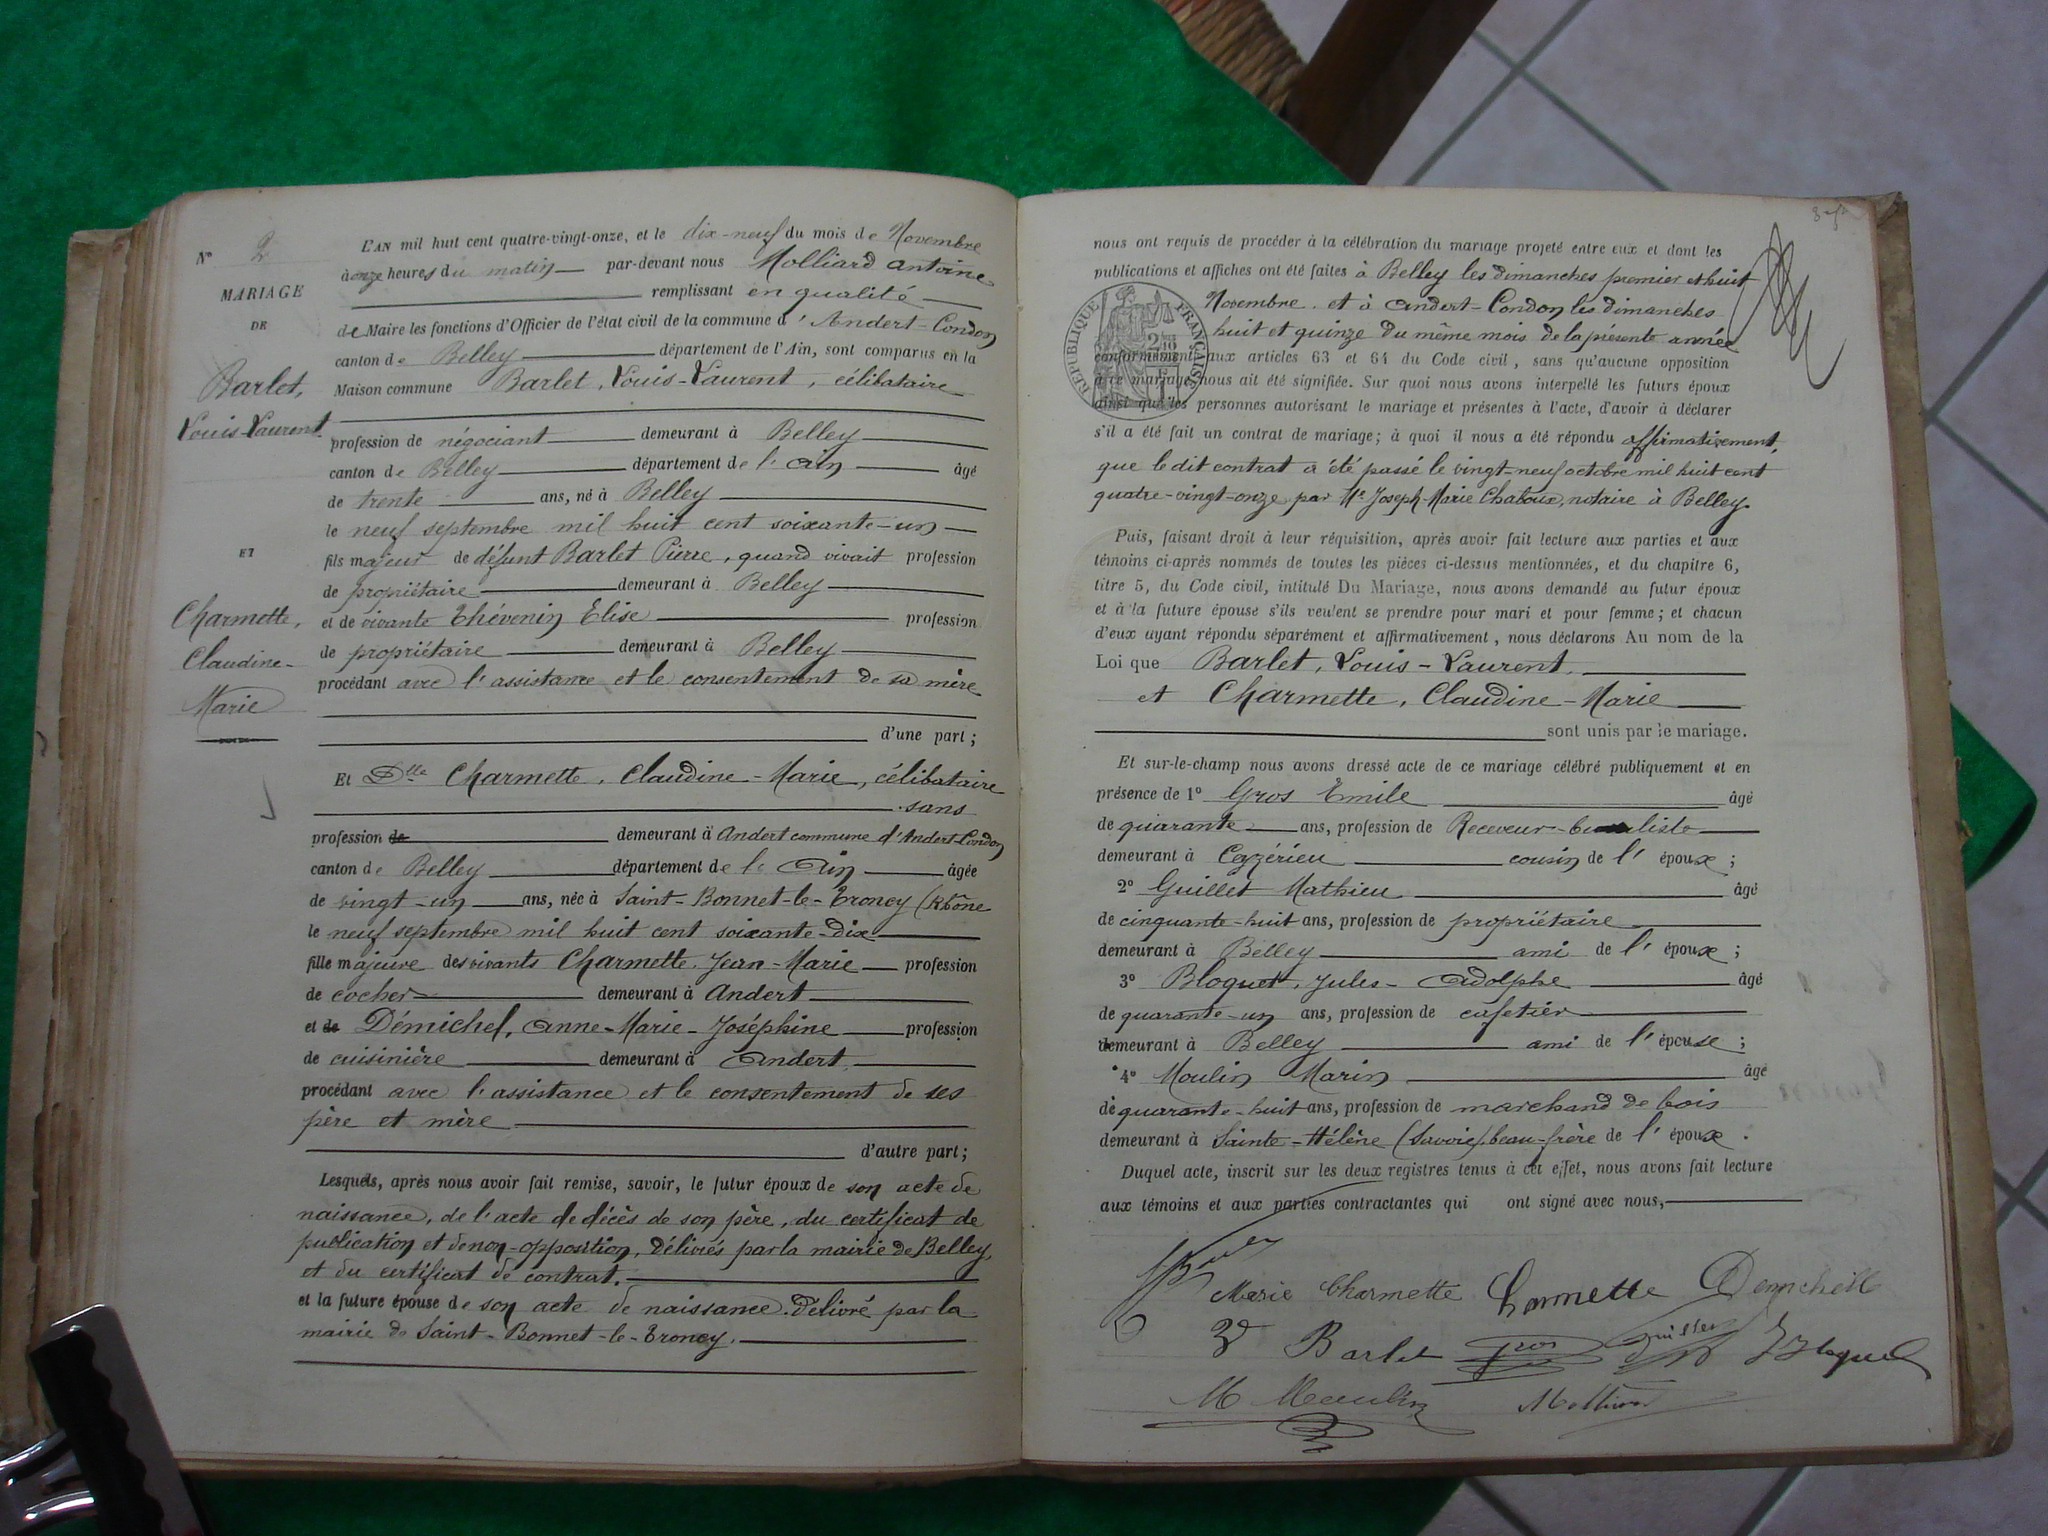 N° 2
MARIAGE
DE
Barlet,
Louis-Laurent
ET
Charmette,
Claudine-
Marie
L'AN mil huit cent quatre-vingt-onze, et le dix-neuf du mois de Novembre
à onze heures du matin par-devant nous Molliard Antoine
remplissant en qualité
de Maire les fonctions d'Officier de l'état civil de la commune d'Andert-Condon
canton de Belley département de l'Ain, sont comparus en la
Maison commune Barlet, Louis-Laurent, célibataire
profession de négociant demeurant à Belley
canton de Belley département de l'Ain âgé
de trente ans, né à Belley
le neuf septembre mil huit cent soixante-un
fils majeur de défunt Barlet Pierre, quand vivait profession
de propriétaire demeurant à Belley
et de vivante Thévenin Elise profession
de propriétaire demeurant à Belley
procédant avec l'assistance et le consentement de sa mère
d'une part;
Et Dlle Charmette, Claudine-Marie, célibataire
sans
profession de demeurant à Andert commune d'Andert-Condon
canton de Belley département de l'Ain âgée
de vingt-un ans, née à Saint-Bonnet-le-Troncy (Rhône
le neuf septembre mil huit cent soixante-dix
fille majeure des vivants Charmette, Jean-Marie profession
de cocher demeurant à Andert
et de Démichel, Anne-Marie-Joséphine profession
de cuisinière demeurant à Andert,
procédant avec l'assistance et le consentement de ses
père et mère
d'autre part;
Lesquels, après nous avoir fait remise, savoir, le futur époux de son acte de
naissance, de l'acte de décès de son père, du certificat de
publication et de non-opposition, délivrés par la mairie de Belley,
et du certificat de contrat.
et la future épouse de son acte de naissance. Délivré par la
mairie de Saint-Bonnet-le-Troncy.
nous ont requis de procéder à la célébration du mariage projeté entre eux et dont les
publications et affiches ont été faites à Belley les dimanches premier et huit
Novembre et à Andert-Condon les dimanches
huit et quinze du même mois de la présente année
conformément aux articles 63 et 64 du Code civil, sans qu'aucune opposition
à ce mariage nous ait été signifiée. Sur quoi nous avons interpellé les futurs époux
ainsi que les personnes autorisant le mariage et présentes à l'acte, d'avoir à déclarer
s'il a été fait un contrat de mariage; à quoi il nous a été répondu affirmativement,
que le dit contrat a été passé le vingt-neuf octobre mil huit cent
quatre-vingt-onze par Me Joseph-Marie Chaboux, notaire à Belley.
RÉPUBLIQUE FRANÇAISE
Puis, faisant droit à leur réquisition, après avoir fait lecture aux parties et aux
témoins ci-après nommés de toutes les pièces ci-dessus mentionnées, et du chapitre 6,
titre 5, du Code civil, intitulé Du Mariage, nous avons demandé au futur époux
et à la future épouse s'ils veulent se prendre pour mari et pour femme; et chacun
d'eux ayant répondu séparément et affirmativement, nous déclarons Au nom de la
Loi que Barlet, Louis-Laurent,
et Charmette, Claudine-Marie
sont unis par le mariage.
Et sur-le-champ nous avons dressé acte de ce mariage célébré publiquement et en
présence de 1° Gros Emile âgé
de quarante ans, profession de Receveur-buraliste
demeurant à Ceyzérieu cousin de l'époux;
2° Guillet Mathieu âgé
de cinquante-huit ans, profession de propriétaire
demeurant à Belley ami de l'époux;
3° Bloquet, Jules-Adolphe âgé
de quarante-un ans, profession de cafetier
demeurant à Belley ami de l'épouse;
4° Moulin Marin âgé
de quarante-huit ans, profession de marchand de bois
demeurant à Sainte-Hélène (Savoie) beau-frère de l'époux.
Duquel acte, inscrit sur les deux registres tenus à cet effet, nous avons fait lecture
aux témoins et aux parties contractantes qui ont signé avec nous,
Marie Charmette Charmette Demichel
Barlet Gros Guillet Bloquet
M Moulin Molliard